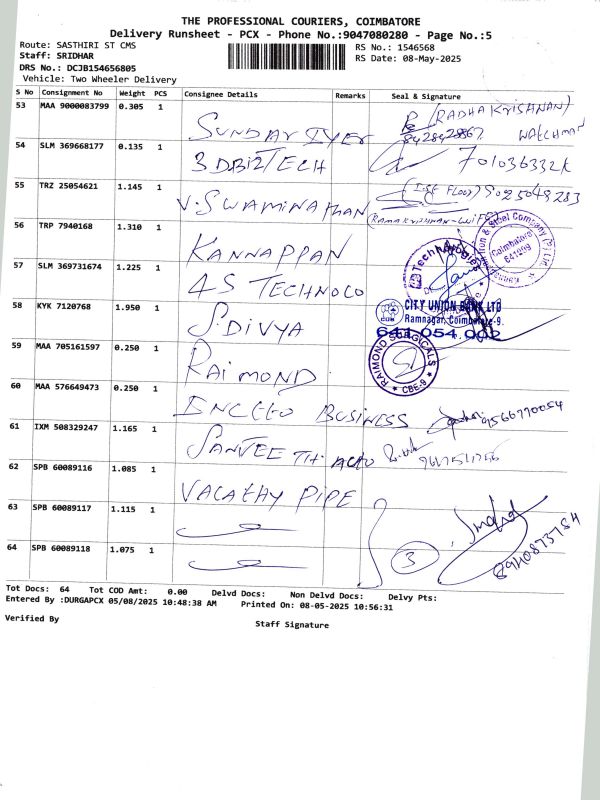 THE PROFESSIONAL COURIERS, COIMBATORE
Delivery Runsheet - PCX - Phone No.:9047080280 - Page No.:5
Route: SASTHIRI ST CMS
Staff: SRIDHAR
DRS No.: DCJB154656805
Vehicle: Two Wheeler Delivery
RS No.: 1546568
RS Date: 08-May-2025
S No Consignment No Weight PCS Consignee Details Remarks Seal & Signature
53 MAA 9000083799 0.305 1 SUNDAR IYER (RADHA KRISHNAN) WATCHMAN
54 SLM 369668177 0.135 1 3DBIZTECH
55 TRZ 25054621 1.145 1 V.SWAMINATHAN 9025049283
56 TRP 7940168 1.310 1 KANNAPPAN
& Steel Company (P) Ltd
Coimbatore
57 SLM 369731674 1.225 1 4S TECHNOLO
Technologies
58 KYK 7120768 1.950 1 S.DIVYA
CITY UNION BANK LTD
CUB
Ramnagar, Coimbatore-9.
641.054.002
59 MAA 705161597 0.250 1 RAIMOND
RAIMOND SURGICALS
CBE-9
60 MAA 576649473 0.250 1 BUSINESS 9566770054
61 IXM 508329247 1.165 1
62 SPB 60089116 1.085 1 PIPE
63 SPB 60089117 1.115 1
64 SPB 60089118 1.075 1 3
Tot Docs: 64 Tot COD Amt: 0.00 Delvd Docs: Non Delvd Docs: Delvy Pts:
Entered By :DURGAPCX 05/08/2025 10:48:38 AM Printed On: 08-05-2025 10:56:31
Verified By
Staff Signature